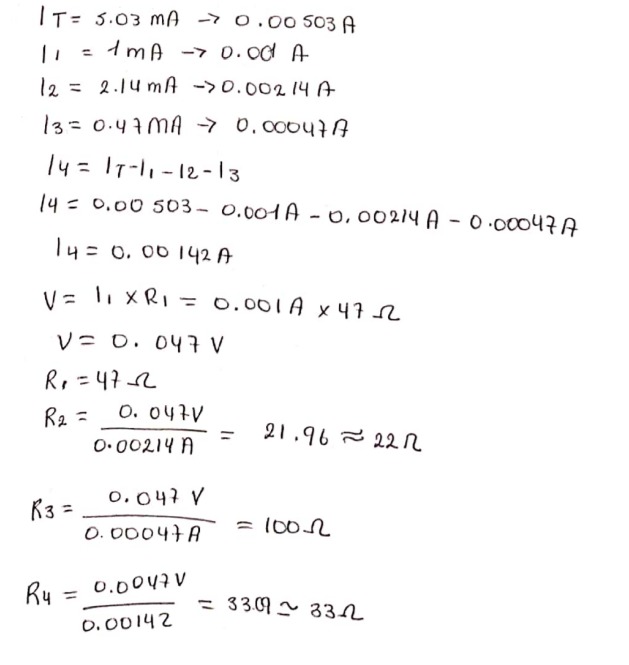 IT = 5.03 mA -> 0.00503 A
I1 = 1mA -> 0.001 A
I2 = 2.14 mA -> 0.00214 A
I3 = 0.47 MA -> 0.00047A
I4 = IT-I1-I2-I3
I4 = 0.00 503 - 0.001A - 0.00214 A - 0.00047A
I4 = 0.00142A
V = I1 x R1 = 0.001A x 47 Ω
V = 0.047 V
R1 = 47 Ω
R2 = 0.047V / 0.00214 A = 21.96 ≈ 22Ω
R3 = 0.047 V / 0.00047A = 100 Ω
R4 = 0.0047V / 0.00142 = 33.09 ≃ 33Ω